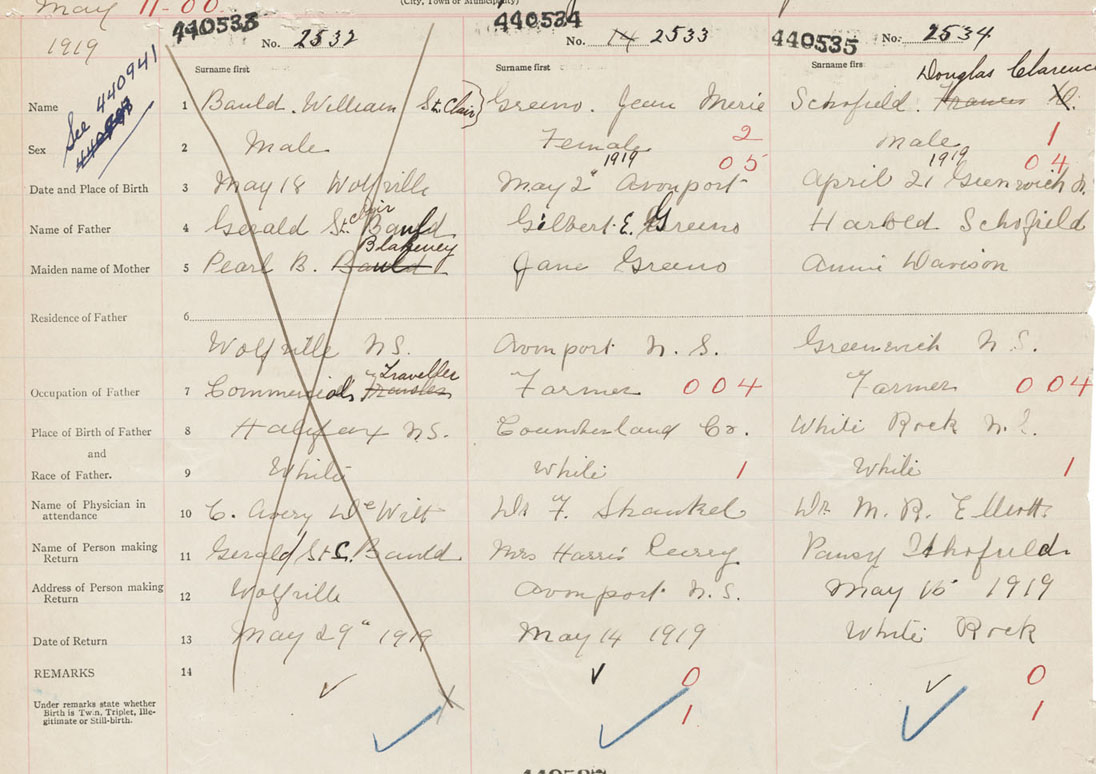 May 11-00.
(City, Town or Municipality)
1919
440533
No. 2532
440534
No. 14 2533
440535
No. 2534
See 440941
Surname first
Surname first
Surname firs
Douglas Clarence
Name 1 Bauld. William St. Clair} Greeno. Jean Merie Schofield. Frances
Sex 2 Male Female 2 Male 1
1919 05 1919 04
Date and Place of Birth 3 May 18 Wolfville May 2" Avonport April 21 Greenwich
Clair
Name of Father 4 Gerald St. Bauld Gilbert E. Greeno Harold Schofield
Blakeney
Maiden name of Mother 5 Pearl B. Bauld Jane Greeno Annie Davison
Residence of Father 6
Wolfville N.S. Avonport N.S. Greenwich N.S.
Traveller
Occupation of Father 7 Commercial Farmer 004 Farmer 004
Place of Birth of Father 8 Halifax N.S. Coumberland Co. White Rock N.S.
and
Race of Father. 9 White White 1 White 1
Name of Physician in
attendance 10 C. Avery DeWitt Dr F. Shankel Dr. M. R. Elliott.
Name of Person making
Return 11 Gerald St. C. Bauld Mrs Harris Pansy Schofield
Address of Person making
Return 12 Wolfville Avonport N.S. May 16 1919
Date of Return 13 May 29" 1919 May 14 1919 White Rock
REMARKS 14 0 0
Under remarks state whether
Birth is Twin, Triplet, Ille-
gitimate or Still-birth.
1 1